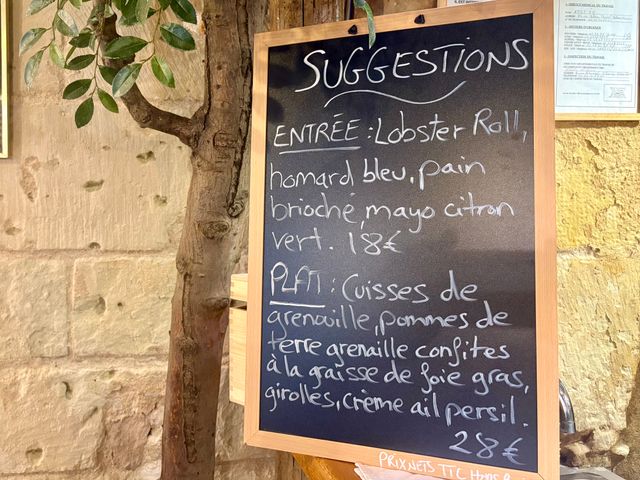 SUGGESTIONS
ENTRÉE : Lobster Roll,
homard bleu, pain
brioché, mayo citron
vert. 18€
PLAT : Cuisses de
grenouille, pommes de
terre grenaille confites
à la graisse de foie gras,
girolles, crème ail persil.
28€
PRIX NETS TTC